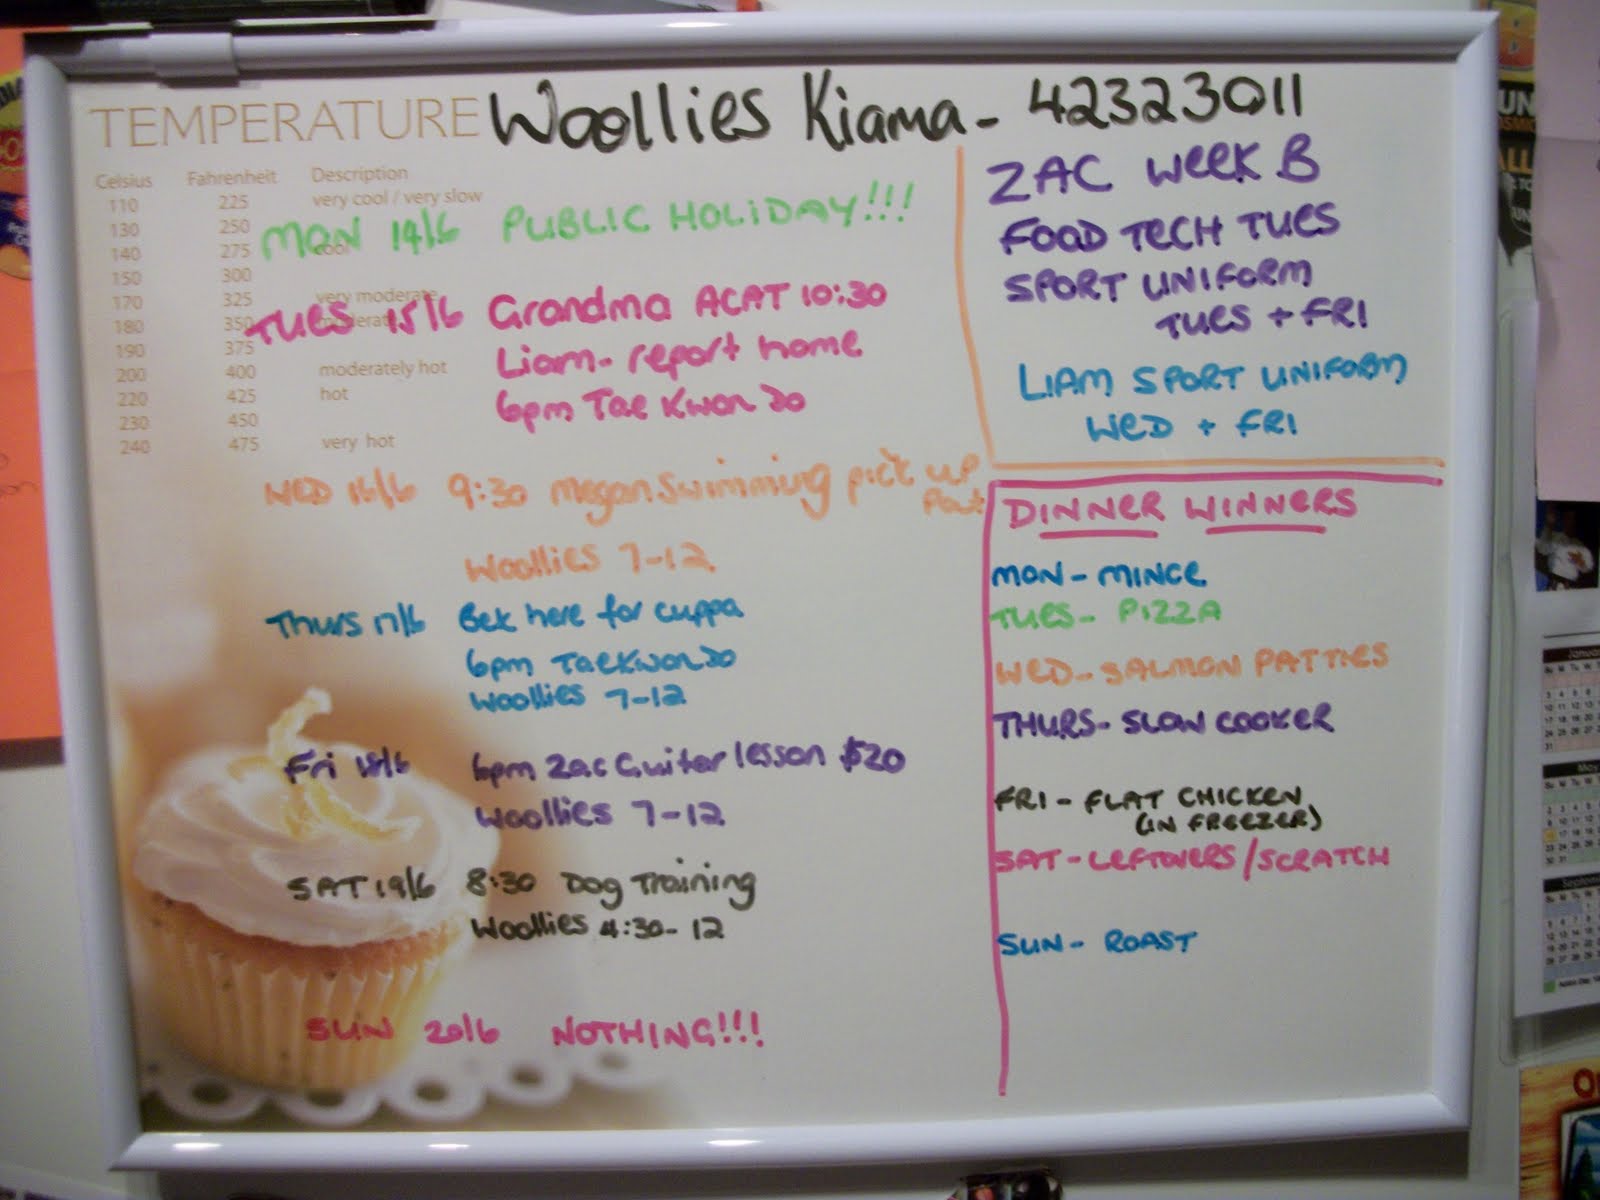 TEMPERATURE Woollies Kiama - 42323011
Celsius Fahrenheit Description
110 225 very cool / very slow
130 250
140 275 cool
150 300
170 325 very moderate
180 350 moderate
190 375
200 400 moderately hot
220 425 hot
230 450
240 475 very hot
MON 14/6 PUBLIC HOLIDAY!!!
TUES 15/6 Grandma ACAT 10:30
Liam - report home
6pm Tae Kwon Do
WED 16/6 9:30 Megan Swimming pick up
Woollies 7-12
Thurs 17/6 Bek here for cuppa
6pm TaeKwonDo
Woollies 7-12
Fri 18/6 6pm Zac Guitar lesson $20
Woollies 7-12
SAT 19/6 8:30 Dog Training
Woollies 4:30-12
SUN 20/6 NOTHING!!!
ZAC WEEK B
FOOD TECH TUES
SPORT UNIFORM
TUES + FRI
LIAM SPORT UNIFORM
WED + FRI
DINNER WINNERS
MON - MINCE
TUES - PIZZA
WED - SALMON PATTIES
THURS - SLOW COOKER
FRI - FLAT CHICKEN
(IN FREEZER)
SAT - LEFTOVERS/SCRATCH
SUN - ROAST